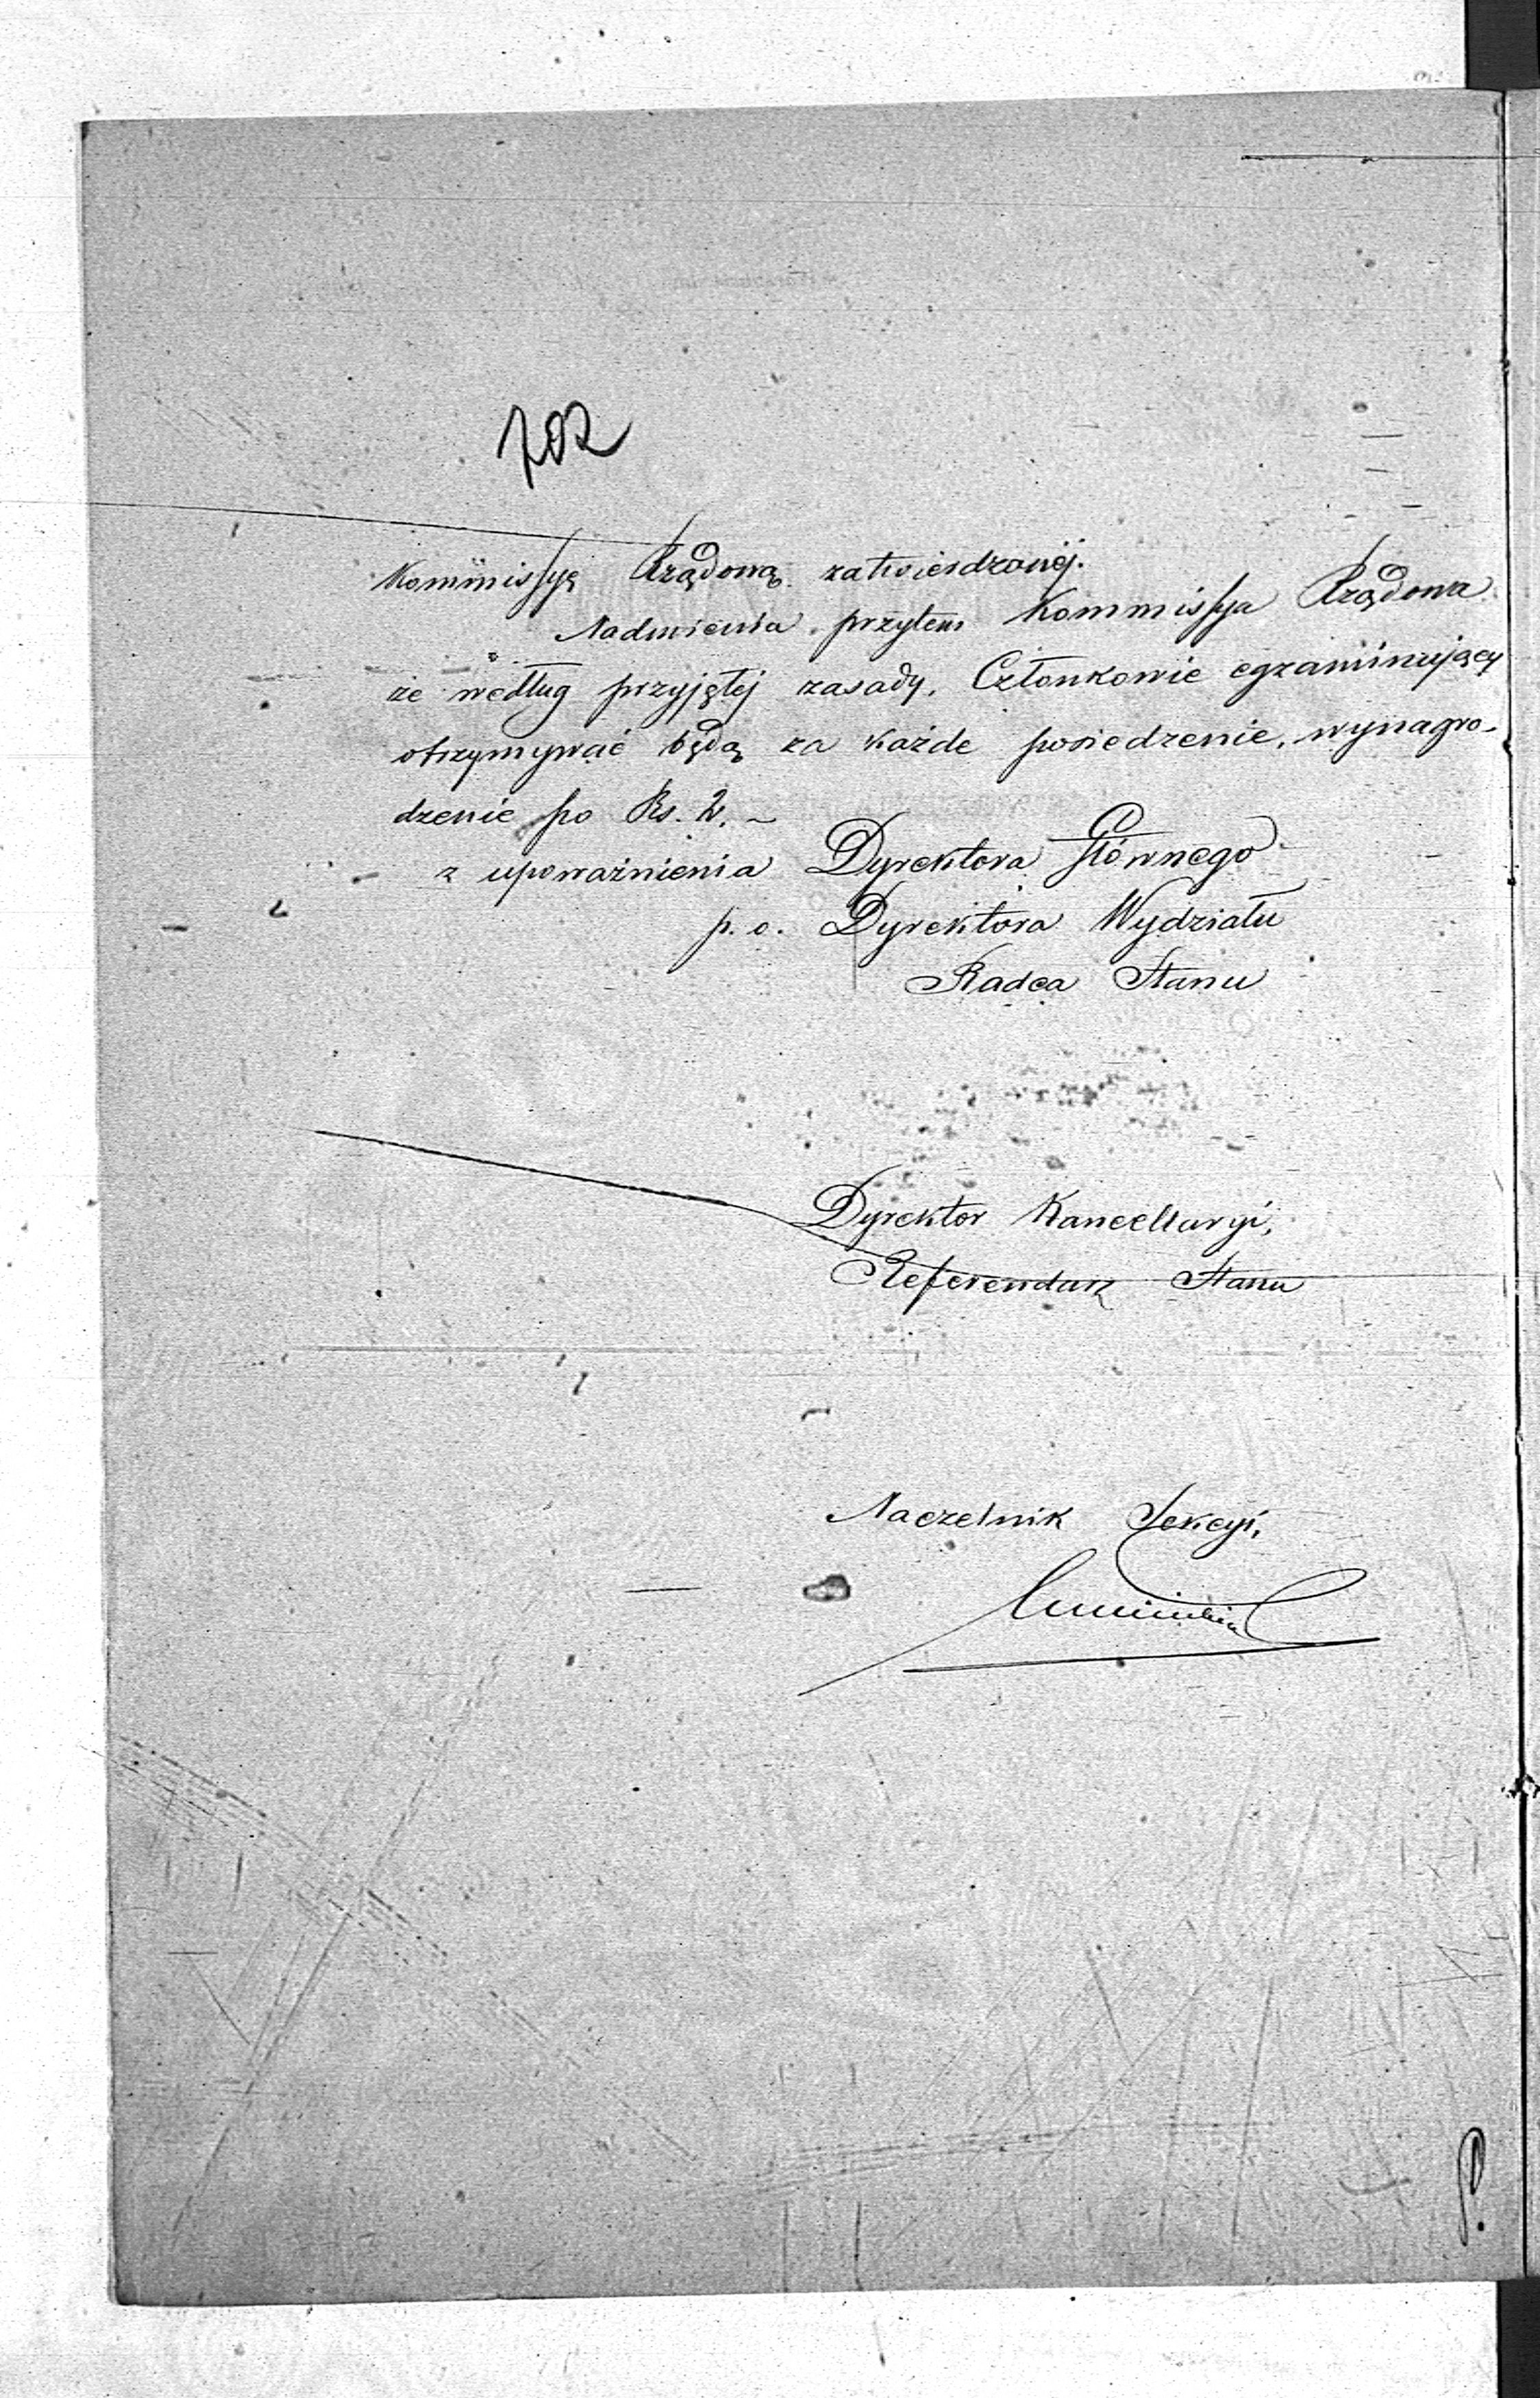 702
Kommissyę Rządową zatwierdzonéj.
Nadmienia przytem Kommissya Rządowa
że według przyjętej zasady, Członkowie egzaminujący
otrzymywać będą za każde posiedzenie, wynagro-
dzenie po Rs. 2. ~
z upoważnienia Dyrektora Głównego
p. o. Dyrektora Wydziału
Radca Stanu
Dyrektor Kancellaryi,
Referendarz Stanu
Naczelnik Sekcyi,